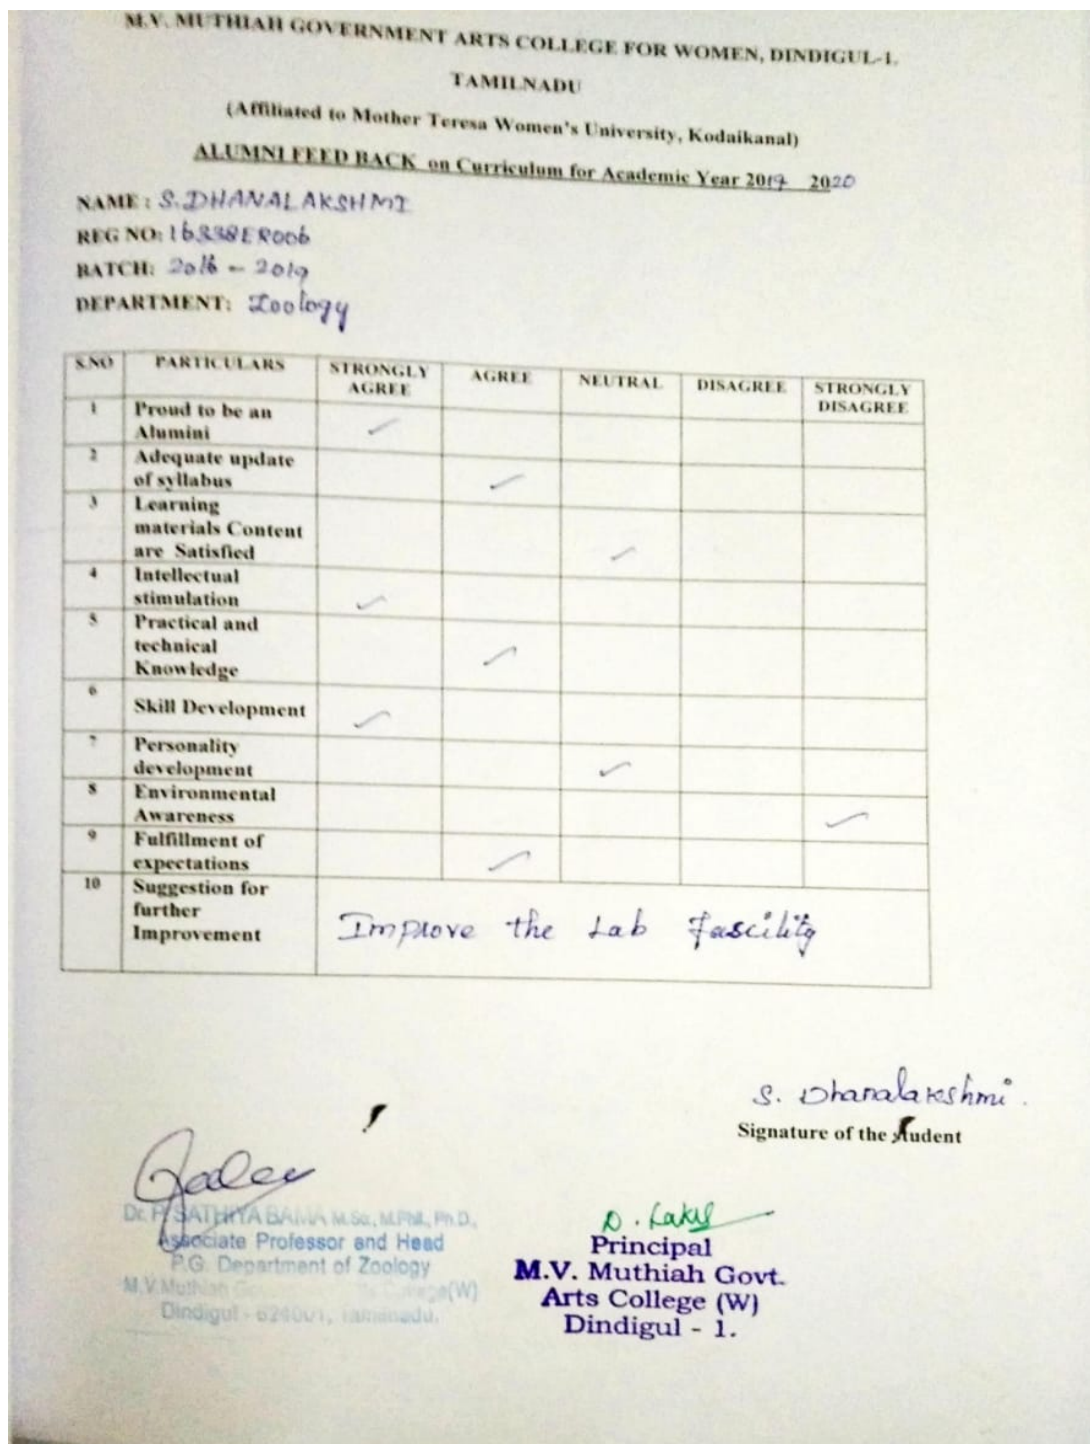 M.V. MUTHIAH GOVERNMENT ARTS COLLEGE FOR WOMEN, DINDIGUL-1.
TAMILNADU
(Affiliated to Mother Teresa Women's University, Kodaikanal)
ALUMNI FEED BACK on Curriculum for Academic Year 2019 2020
NAME : S.DHANALAKSHMI
REG NO: 16338ER006
BATCH: 2016 - 2019
DEPARTMENT: Zoology
S.NO PARTICULARS STRONGLY AGREE NEUTRAL DISAGREE STRONGLY
AGREE DISAGREE
1 Proud to be an
Alumini ✓
2 Adequate update
of syllabus ✓
3 Learning
materials Content
are Satisfied ✓
4 Intellectual
stimulation ✓
5 Practical and
technical
Knowledge ✓
6
Skill Development ✓
7 Personality
development ✓
8 Environmental
Awareness ✓
9 Fulfillment of
expectations ✓
10 Suggestion for
further
Improvement Improve the Lab Fascility
S. Dhanalakshmi.
Signature of the student
Dr. P. SATHIYA BAMA M.Sc., M.Phil., Ph.D.,
Associate Professor and Head
P.G. Department of Zoology
M.V.Muthiah (W)
Dindigul - 624001, Tamilnadu.
Principal
M.V. Muthiah Govt.
Arts College (W)
Dindigul - 1.